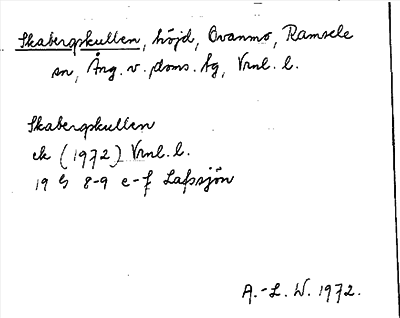 Skabergskullen, höjd, Ovanmo, Ramsele
sn, Ång. v. doms. tg, Vrnl. l.
Skabergskullen
ek (1972) Vrnl. l.
19 G 8-9 e-f Lafssjön
A.-L. W. 1972.